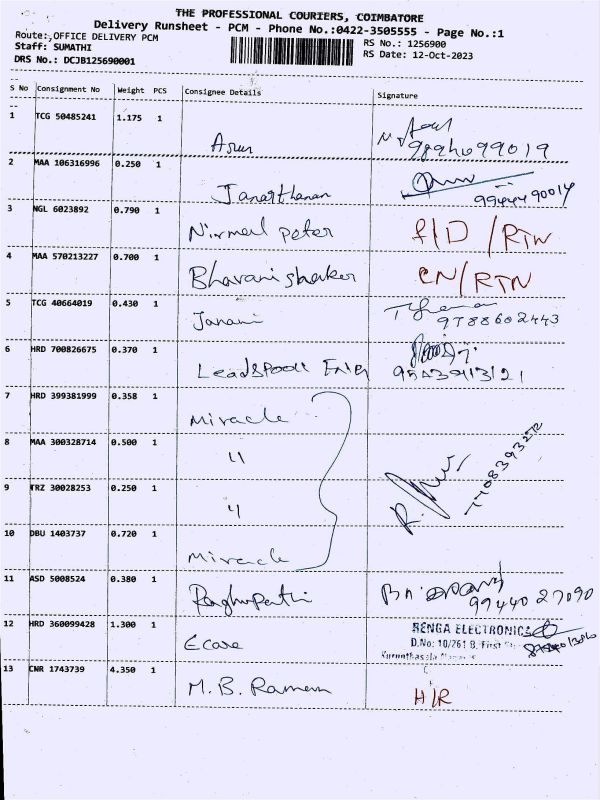 THE PROFESSIONAL COURIERS, COIMBATORE
Delivery Runsheet - PCM - Phone No.:0422-3505555 - Page No.:1
Route:,OFFICE DELIVERY PCM
RS No.: 1256900
Staff: SUMATHI
RS Date: 12-Oct-2023
DRS No.: DCJB125690001
S No Consignment No Weight PCS Consignee Details Signature
1 TCG 50485241 1.175 1
Arun 9894099019
2 MAA 106316996 0.250 1
Janarthanan 9944490014
3 NGL 6023892 0.790 1
Nirmal peter F/D / RTN
4 MAA 570213227 0.700 1
Bhavani shanker CN/RTN
5 TCG 40664019 0.430 1
Janani 9788602443
6 HRD 700826675 0.370 1
Leadspool
7 HRD 399381999 0.358 1
Miracle
8 MAA 300328714 0.500 1
"
9 TRZ 30028253 0.250 1
"
7708393272
10 DBU 1403737 0.720 1
Miracle
11 ASD 5008524 0.380 1
Raghupathi 9944027090
12 HRD 360099428 1.300 1
Ecare RENGA ELECTRONICS
D.No: 10/261 B, First
13 CNR 1743739 4.350 1
M.B. Raman H/R